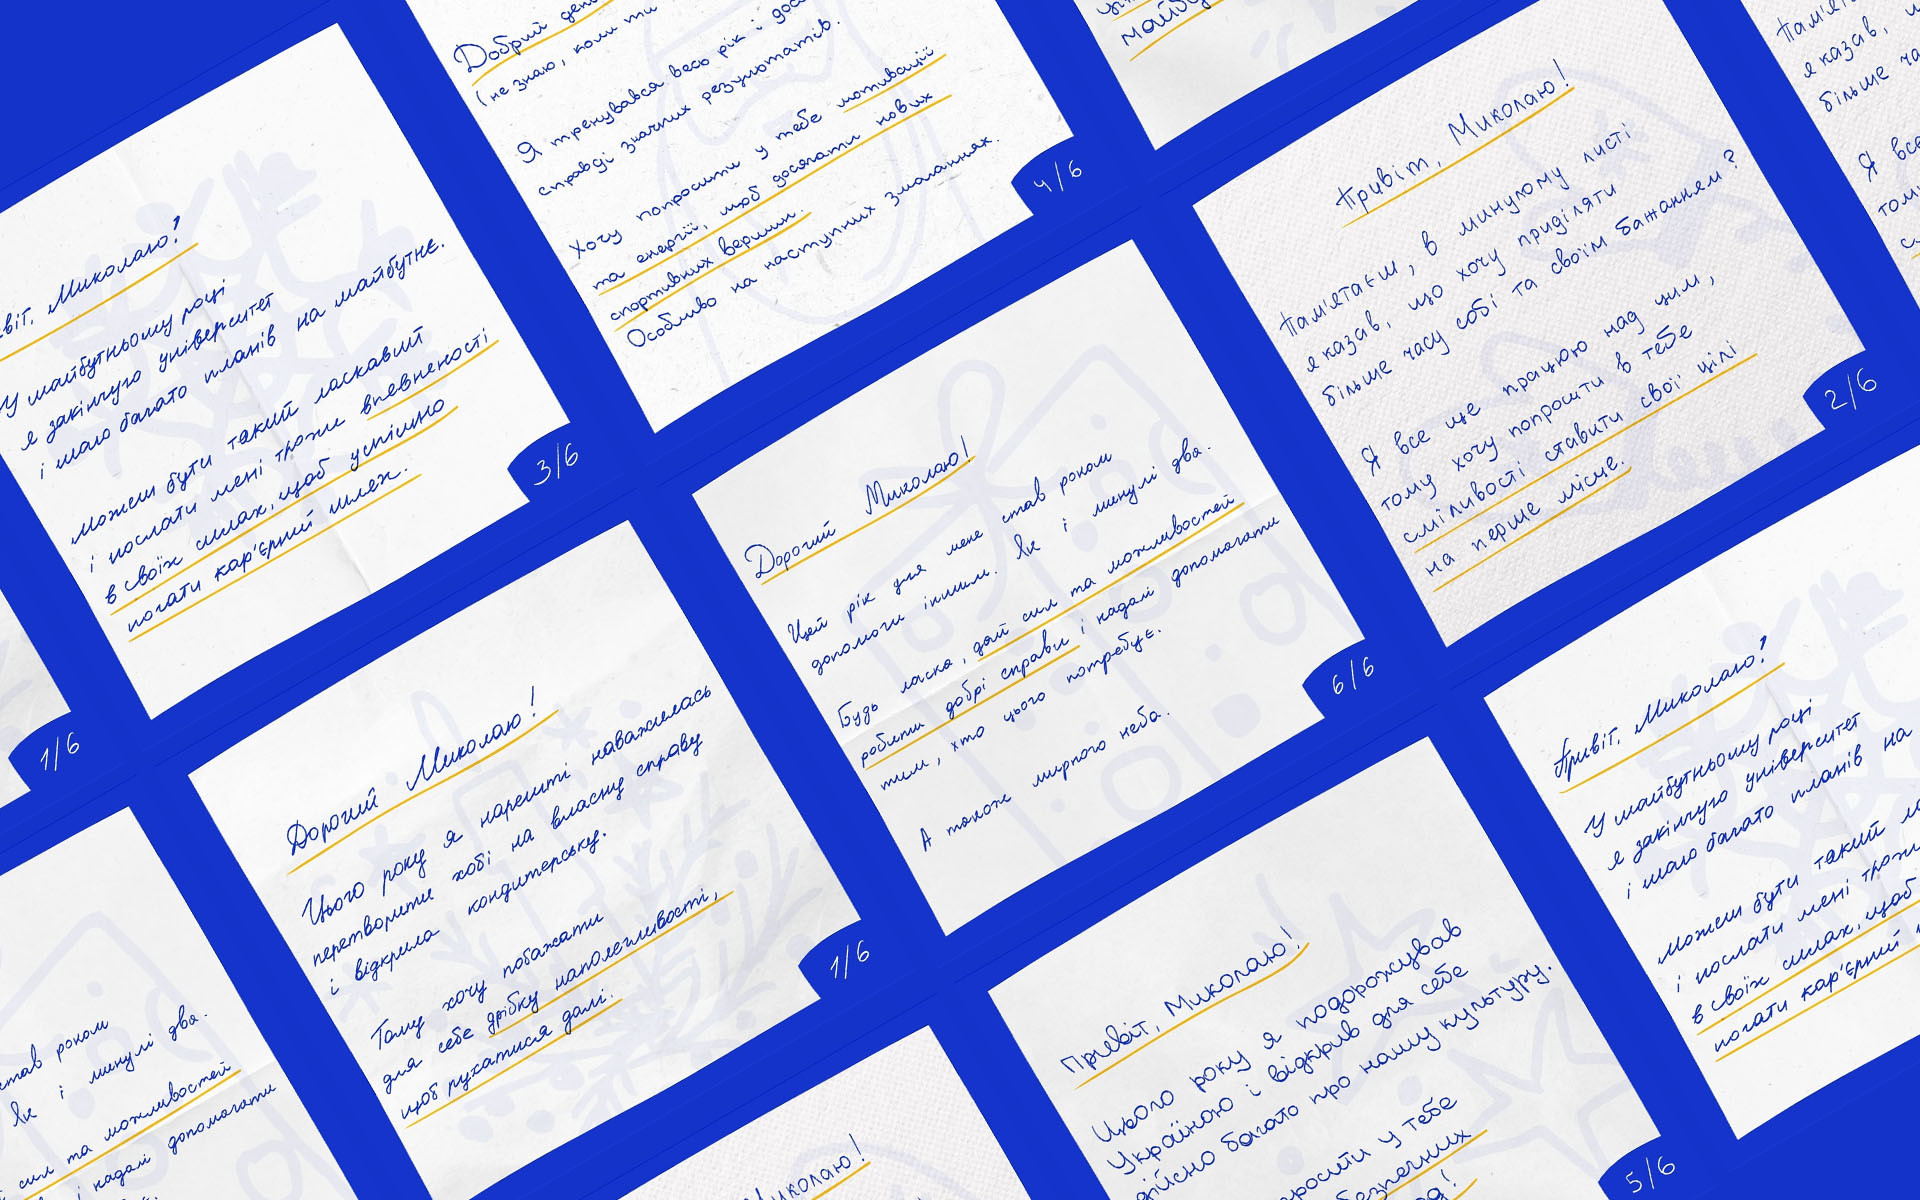 Добрий
(не знаю, коли ти
Я тренувався весь рік і
справді значних результатів.
Хочу попросити у тебе мотивації
та енергії, щоб досягати нових
спортивних вершин.
Особливо на наступних змаганнях.
4/6
майбу
Привіт, Миколаю!
Пам'ятаєш, в минулому листі
я казав, що хочу приділяти
більше часу собі та своїм бажанням?
Я все ще працюю над цим,
тому хочу попросити в тебе
сміливості ставити свої цілі
на перше місце.
2/6
Пам'ята
я казав,
більше ча
Я все
тому
віт, Миколаю!
У майбутньому році
я закінчую університет
і маю багато планів на майбутнє.
Можеш бути такий ласкавий
і послати мені трохи впевненості
в своїх силах, щоб успішно
почати кар'єрний шлях.
3/6
1/6
Дорогий Миколаю!
Цей рік для мене став роком
допомоги іншим. Як і минулі два.
Будь ласка, дай сил та можливостей
робити добрі справи і надалі допомагати
тим, хто цього потребує.
А також мирного неба.
6/6
Дорогий Миколаю!
Цього року я нарешті наважилась
перетворити хобі на власну справу
і відкрила кондитерську.
Тому хочу побажати
для себе дрібку наполегливості,
щоб рухатися далі.
1/6
Привіт, Миколаю!
У майбутньому році
я закінчую університет
і маю багато планів на
Можеш бути такий
і послати мені трохи
в своїх силах, щоб
почати кар'єрний
став роком
Як і минулі два.
сил та можливостей
і надалі допомагати
Привіт, Миколаю!
Цього року я подорожував
Україною і відкрив для себе
дійсно багато про нашу культуру.
росити у тебе
безпечних
5/6
Миколаю!